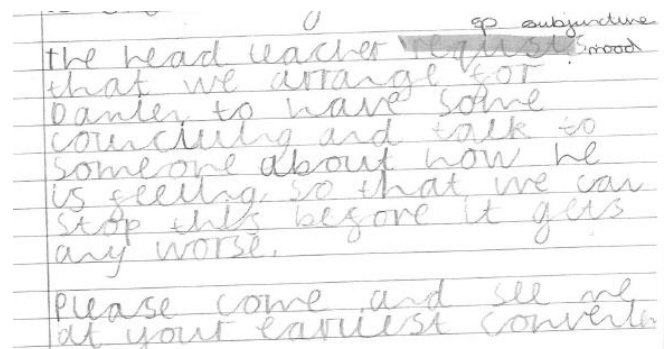 sp subjunctive
mood
the head teacher requests
that we arrange for
Daniel to have some
counciling and talk to
someone about how he
is feeling, so that we can
stop this before it gets
any worse.
Please come and see me
at your earliest